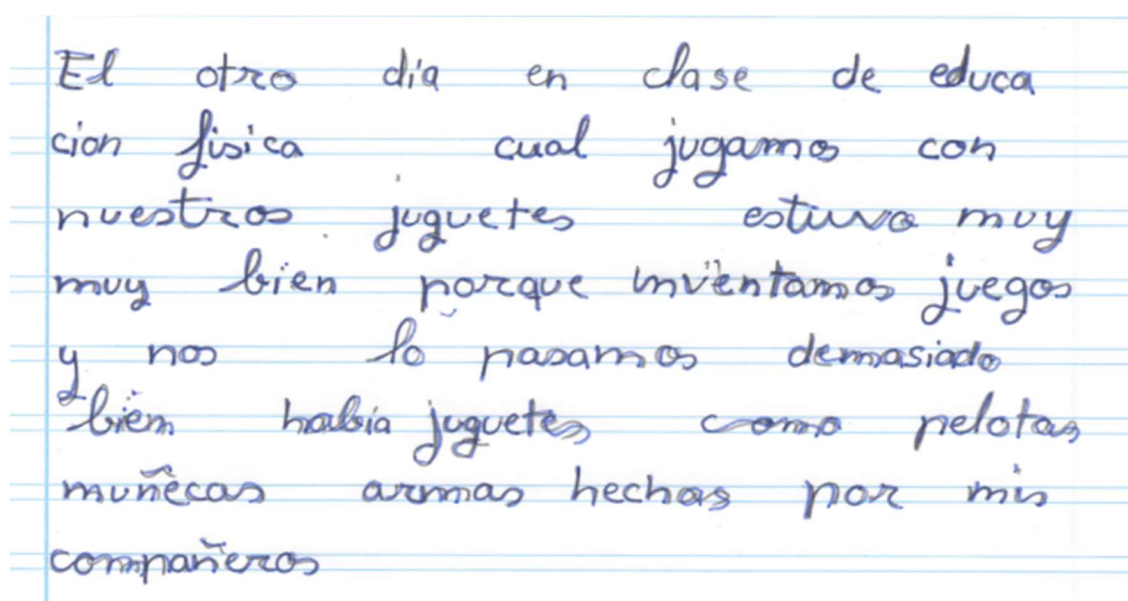 El otro día en clase de educa
cion fisica cual jugamos con
nuestros juguetes estuvo muy
muy bien porque inventamos juegos
y nos lo pasamos demasiado
bien había juguetes como pelotas
muñecas armas hechas por mis
compañeros